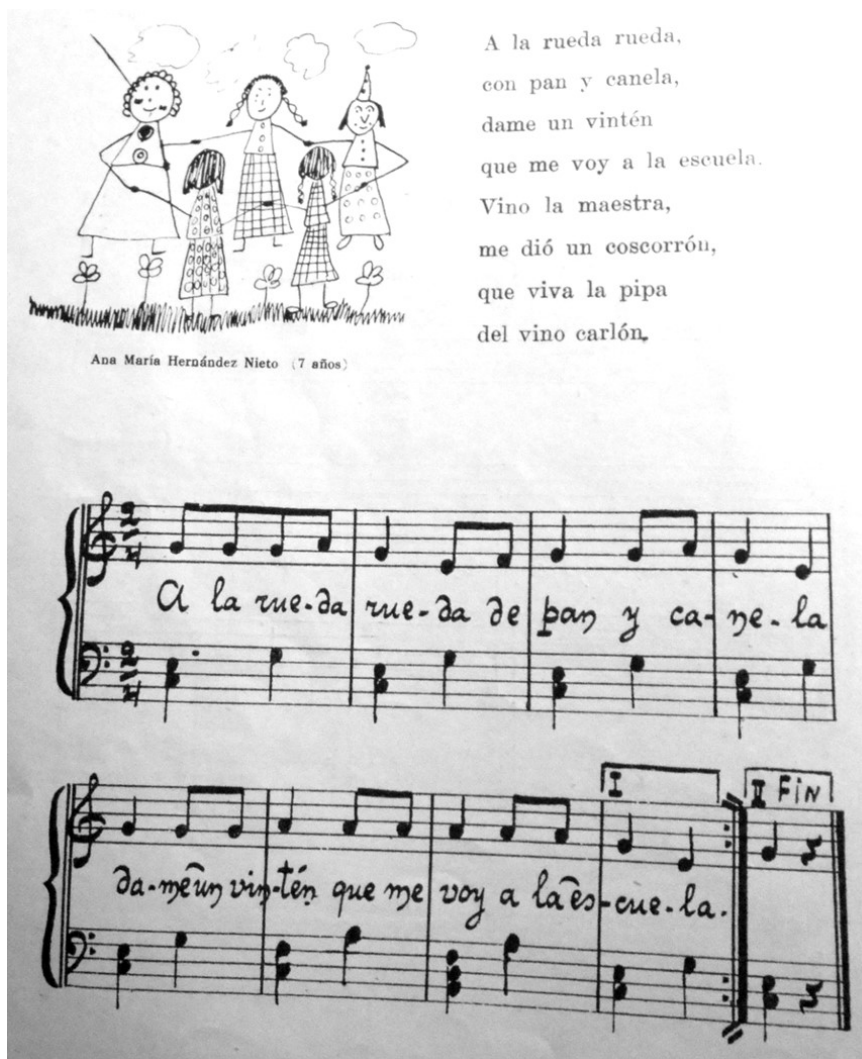 A la rueda rueda,
con pan y canela,
dame un vintén
que me voy a la escuela.
Vino la maestra,
me dió un coscorrón,
que viva la pipa
del vino carlón.
Ana María Hernández Nieto (7 años)
2
4
A la rue-da rue-da de pan y ca-ne-la
I
II FiN
da-me un vin-tén que me voy a la es-cue-la.